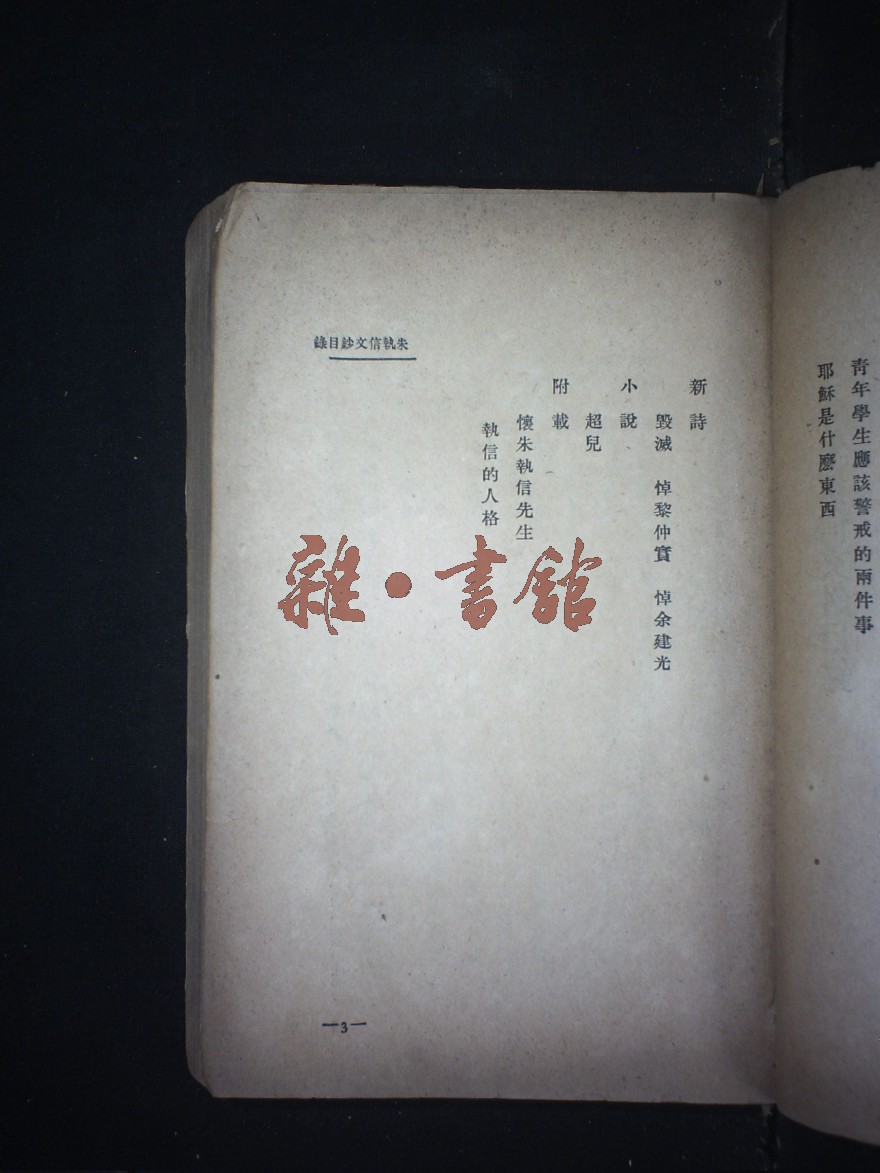 青年學生應該警戒的兩件事
耶穌是什麼東西
朱執信文鈔目錄
新詩
毀滅 悼黎仲實 悼余建光
小說
超兒
附載
懷朱執信先生
執信的人格
雜·書館
—3—